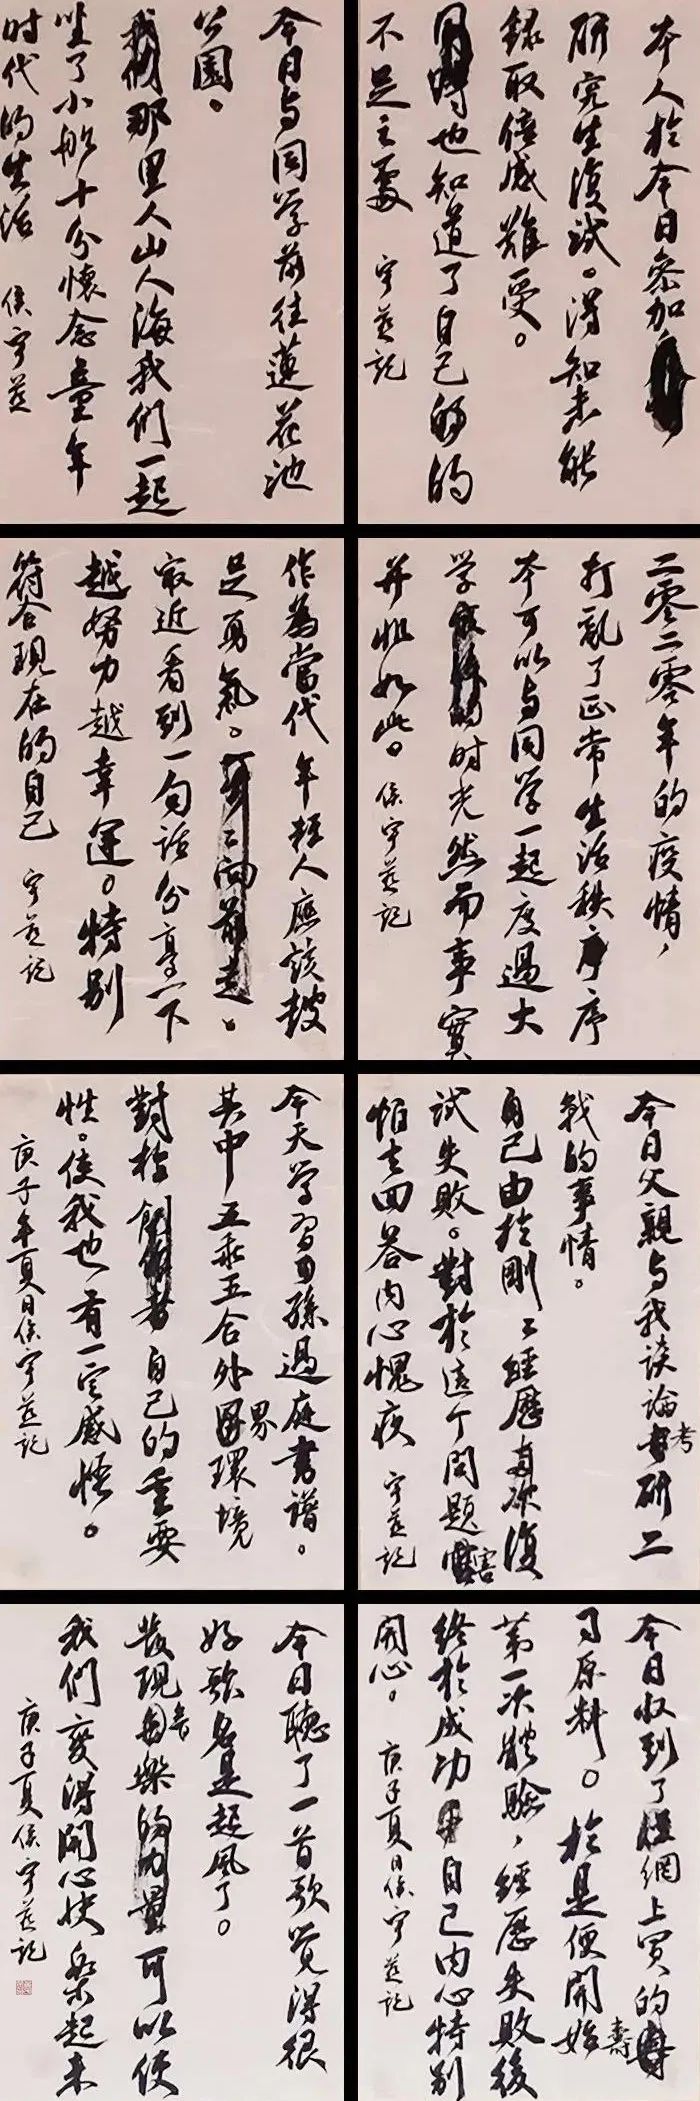 本人於今日参加
研究生復試。得知未能
錄取倍感難受。
同時也知道了自己的的
不足之處
宇慈記
今日与同学前往蓮花池
公園。
我們那里人山人海我们一起
坐了小船十分懷念童年
时代的生活
侯宇慈
二零二零年的疫情，
打亂了正常生活秩序序
本可以与同学一起度過大
学的时光然而事實
并非如此。
侯宇慈記
作為當代年輕人應該鼓
足勇氣。向前走。
最近看到一句话分享一下
越努力越幸運。特别
符合現在的自己
宇慈記
今日父親与我谈論考研二
戰的事情。
自己由於剛二經歷兩次復
试失敗。對於這个問題害
怕去回答内心愧疚
宇慈記
今天学習了孫過庭書谱。
其中五乖五合外界環境
對於創作者自己的重要
性。使我也有一定感悟。
庚子年夏日侯宇慈記
今日收到了網上買的壽
司原料。於是便開始
第一次體驗，經歷失敗後
終於成功自己内心特别
開心。
庚子夏日侯宇慈記
今日聽了一首歌觉得很
好歌名是起風了。
發現音樂的力量可以使
我們變得開心快樂起来
庚子夏侯宇慈記